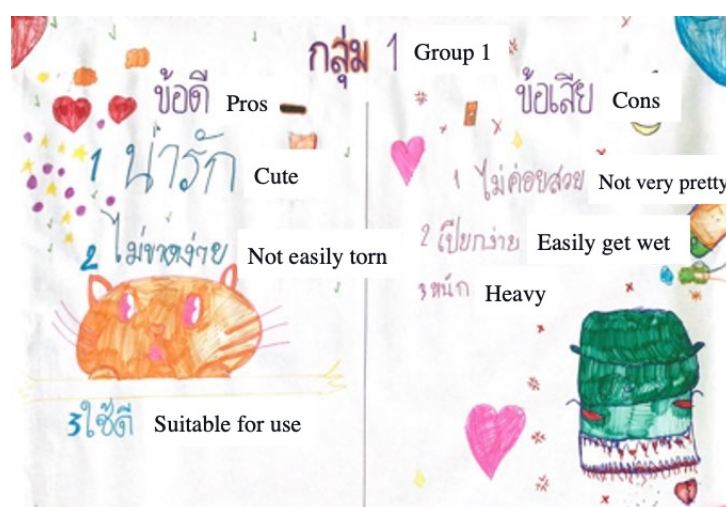 กลุ่ม 1 Group 1
ข้อดี Pros
1 น่ารัก Cute
2 ไม่ขาดง่าย Not easily torn
3 ใช้ดี Suitable for use
ข้อเสีย Cons
1 ไม่ค่อยสวย Not very pretty
2 เปียกง่าย Easily get wet
3 หนัก Heavy